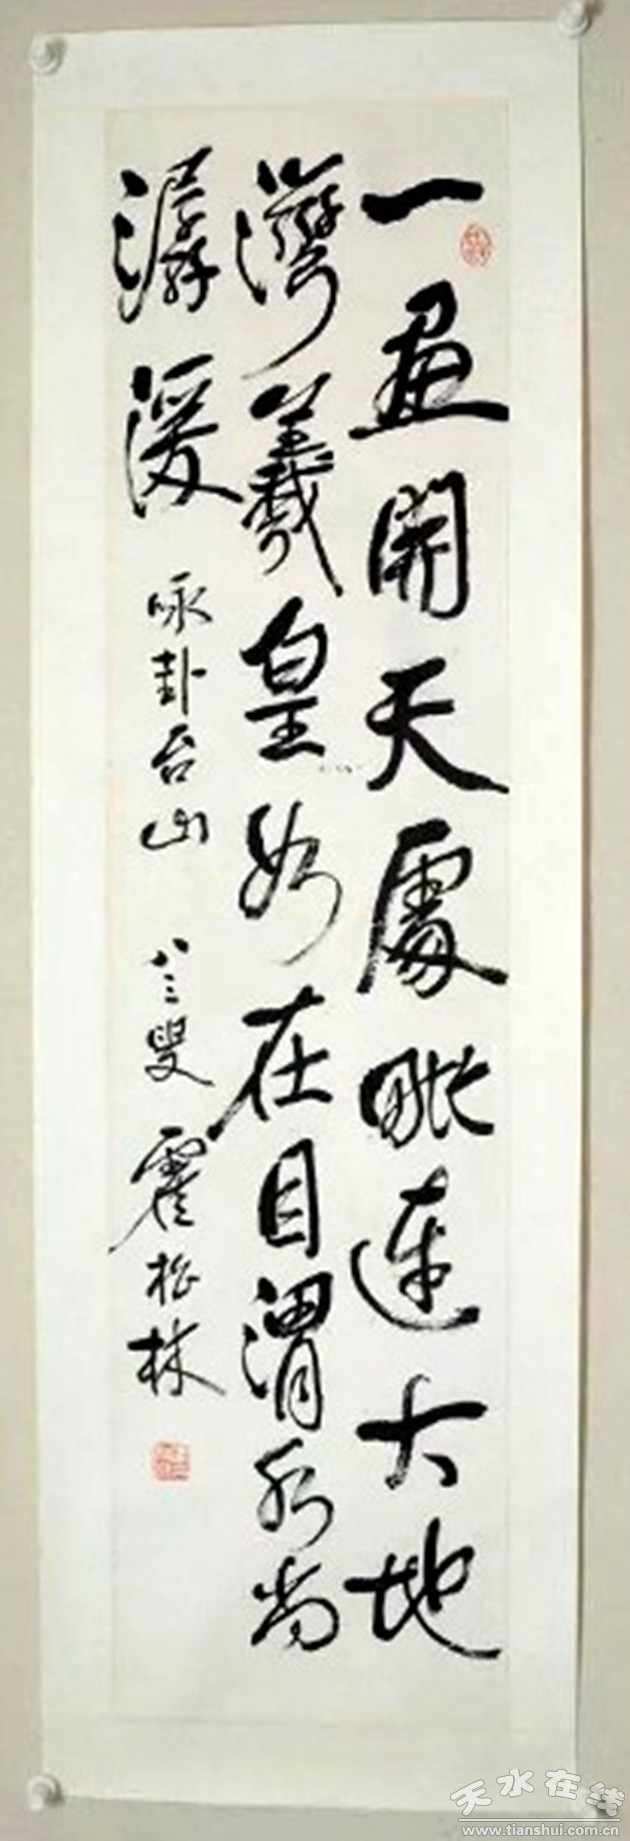 一畫開天處毗連大地
灣羲皇如在目渭水尚
潺湲 咏卦台山 八三叟 霍松林
天水在线
www.tianshui.com.cn